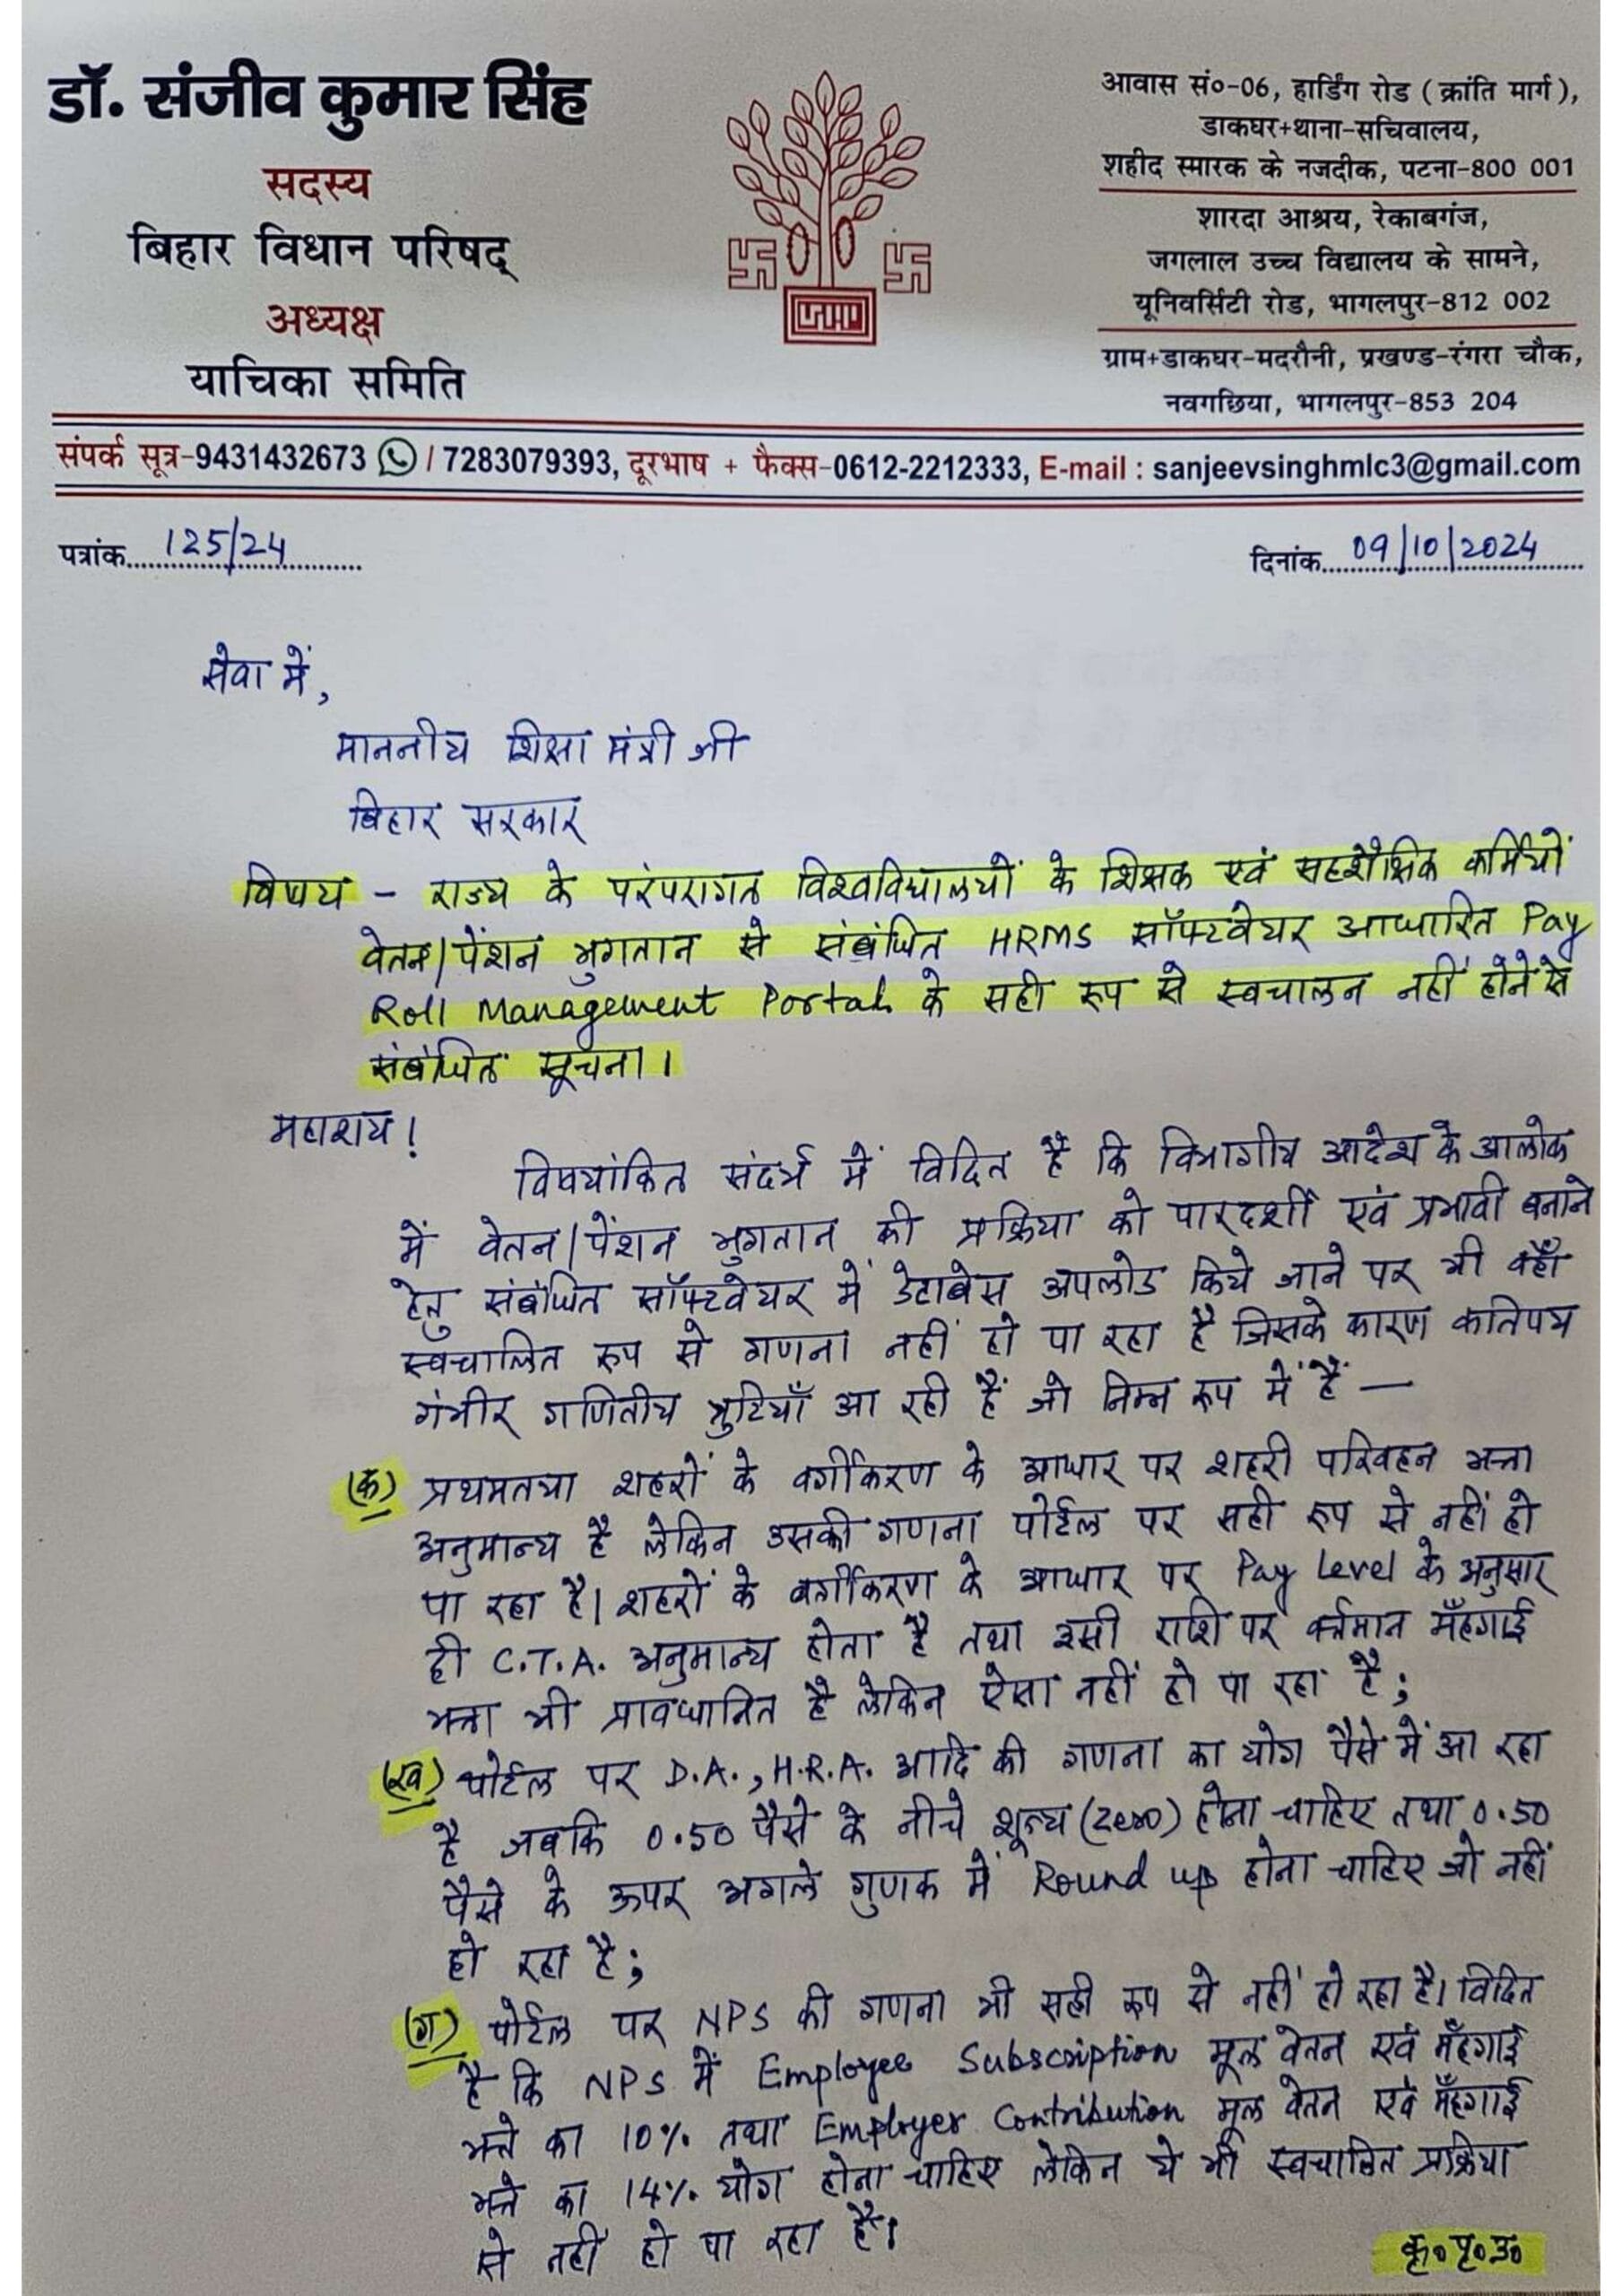 डॉ. संजीव कुमार सिंह
सदस्य
बिहार विधान परिषद्
अध्यक्ष
याचिका समिति
आवास सं०-06, हार्डिंग रोड (क्रांति मार्ग),
डाकघर+थाना-सचिवालय,
शहीद स्मारक के नजदीक, पटना-800 001
शारदा आश्रय, रेकाबगंज,
जगलाल उच्च विद्यालय के सामने,
यूनिवर्सिटी रोड, भागलपुर-812 002
ग्राम+डाकघर-मदरौनी, प्रखण्ड-रंगरा चौक,
नवगछिया, भागलपुर-853 204
संपर्क सूत्र-9431432673 / 7283079393, दूरभाष + फैक्स-0612-2212333, E-mail : sanjeevsinghmlc3@gmail.com
पत्रांक.... 125/24
दिनांक.... 09/10/2024
सेवा में,
माननीय शिक्षा मंत्री जी
बिहार सरकार
विषय - राज्य के परंपरागत विश्वविद्यालयों के शिक्षक एवं सहशैक्षिक कर्मियों
वेतन/पेंशन भुगतान से संबंधित HRMS सॉफ्टवेयर आधारित Pay
Roll Management Portal के सही रूप से स्वचालन नहीं होने से
संबंधित सूचना।
महाशय!
विषयांकित संदर्भ में विदित है कि विभागीय आदेश के आलोक
में वेतन/पेंशन भुगतान की प्रक्रिया को पारदर्शी एवं प्रभावी बनाने
हेतु संबंधित सॉफ्टवेयर में डेटाबेस अपलोड किये जाने पर भी वहाँ
स्वचालित रूप से गणना नहीं हो पा रहा है जिसके कारण कतिपय
गंभीर गणितीय त्रुटियाँ आ रही हैं जो निम्न रूप में हैं —
(क) प्रथमतया शहरों के वर्गीकरण के आधार पर शहरी परिवहन भत्ता
अनुमान्य है लेकिन उसकी गणना पोर्टल पर सही रूप से नहीं हो
पा रहा है। शहरों के वर्गीकरण के आधार पर Pay Level के अनुसार
ही C.T.A. अनुमान्य होता है तथा उसी राशि पर वर्त्तमान मँहगाई
भत्ता भी प्रावधानित है लेकिन ऐसा नहीं हो पा रहा है;
(ख) पोर्टल पर D.A., H.R.A. आदि की गणना का योग पैसे में आ रहा
है जबकि 0.50 पैसे के नीचे शून्य (Zero) होना चाहिए तथा 0.50
पैसे के ऊपर अगले गुणक में Round up होना चाहिए जो नहीं
हो रहा है;
(ग) पोर्टल पर NPS की गणना भी सही रूप से नहीं हो रहा है। विदित
है कि NPS में Employee Subscription मूल वेतन एवं मँहगाई
भत्ते का 10% तथा Employer Contribution मूल वेतन एवं मँहगाई
भत्ते का 14% योग होना चाहिए लेकिन ये भी स्वचालित प्रक्रिया
से नहीं हो पा रहा है।
कृ०पृ०उ०